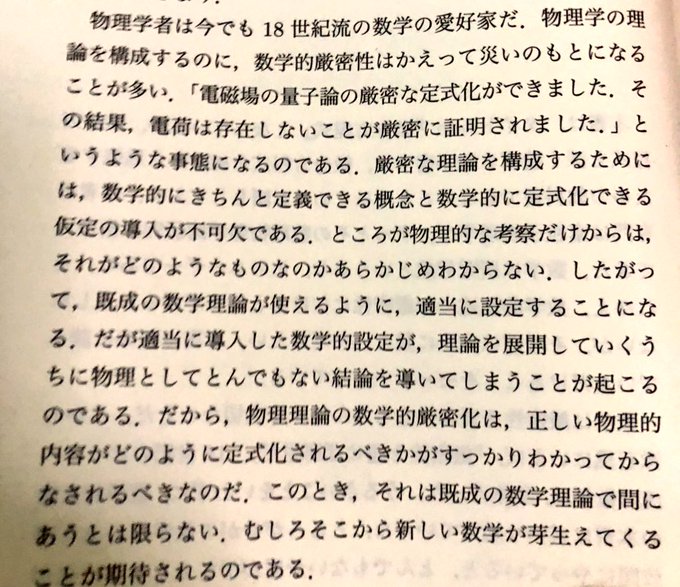 物理学者は今でも 18 世紀流の数学の愛好家だ．物理学の理
論を構成するのに，数学的厳密性はかえって災いのもとになる
ことが多い．「電磁場の量子論の厳密な定式化ができました．そ
の結果，電荷は存在しないことが厳密に証明されました．」と
いうような事態になるのである．厳密な理論を構成するために
は，数学的にきちんと定義できる概念と数学的に定式化できる
仮定の導入が不可欠である．ところが物理的な考察だけからは，
それがどのようなものなのかあらかじめわからない．したがっ
て，既成の数学理論が使えるように，適当に設定することにな
る．だが適当に導入した数学的設定が，理論を展開していくう
ちに物理としてとんでもない結論を導いてしまうことが起こる
のである．だから，物理理論の数学的厳密化は，正しい物理的
内容がどのように定式化されるべきかがすっかりわかってから
なされるべきなのだ．このとき，それは既成の数学理論で間に
あうとは限らない．むしろそこから新しい数学が芽生えてくる
ことが期待されるのである．